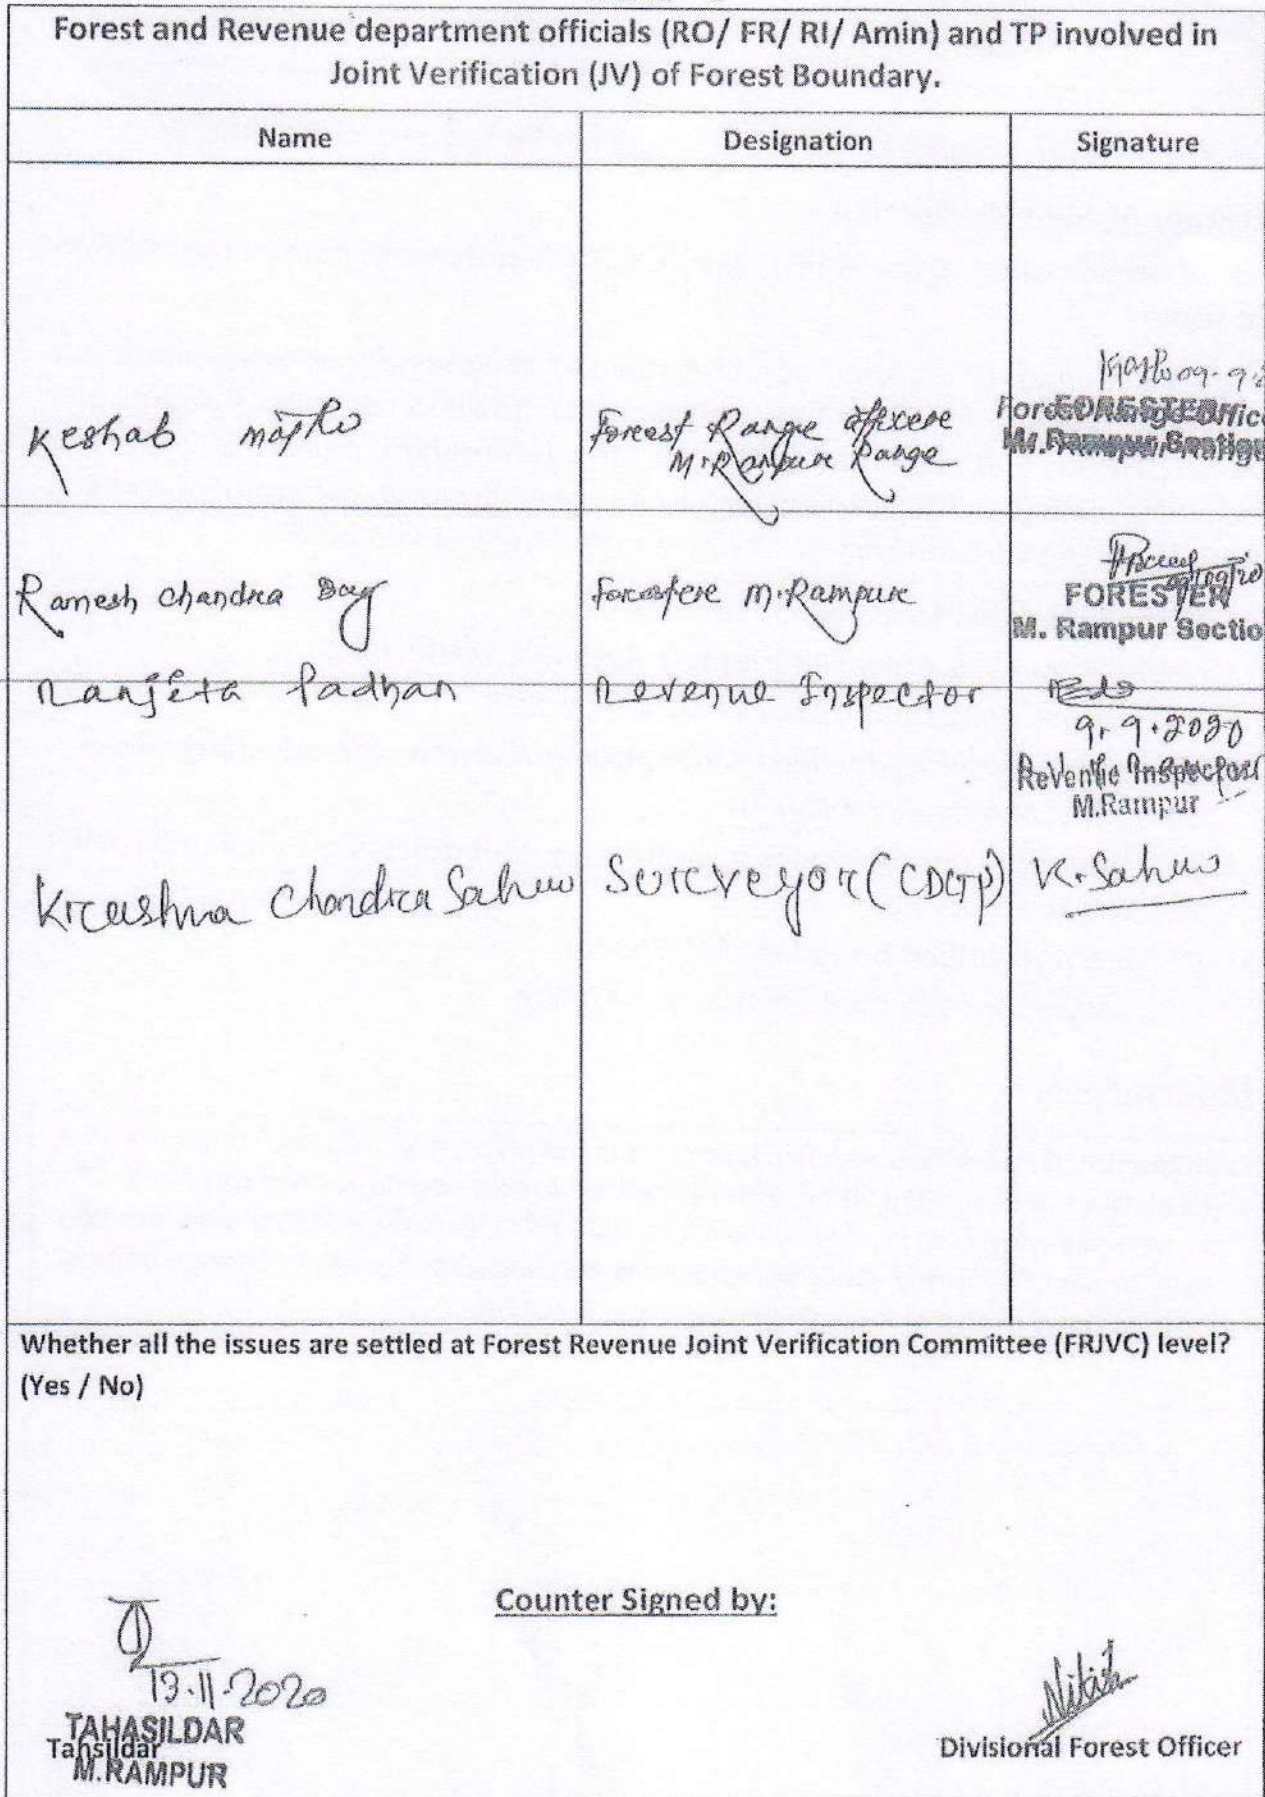 Forest and Revenue department officials (RO/ FR/ RI/ Amin) and TP involved in
Joint Verification (JV) of Forest Boundary.
Name Designation Signature
09-9-2
Keshab Forest Range Officer
M. Rampur Range
FORESTER
M. Rampur Section
Ramesh Chandra Bag Forester M. Rampur
FORESTER
M. Rampur Sectio
Ranjeta Padhan Revenue Inspector
9.9.2020
Revenue Inspector
M.Rampur
Krushna Chandra Sahu Surveyor (CDGTP) K. Sahu
Whether all the issues are settled at Forest Revenue Joint Verification Committee (FRJVC) level?
(Yes / No)
Counter Signed by:
13.11.2020
TAHASILDAR
Tahsildar
M.RAMPUR
Nitish
Divisional Forest Officer